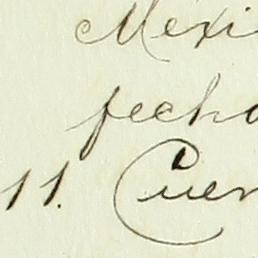 Mexi
fecha
11. Cuer